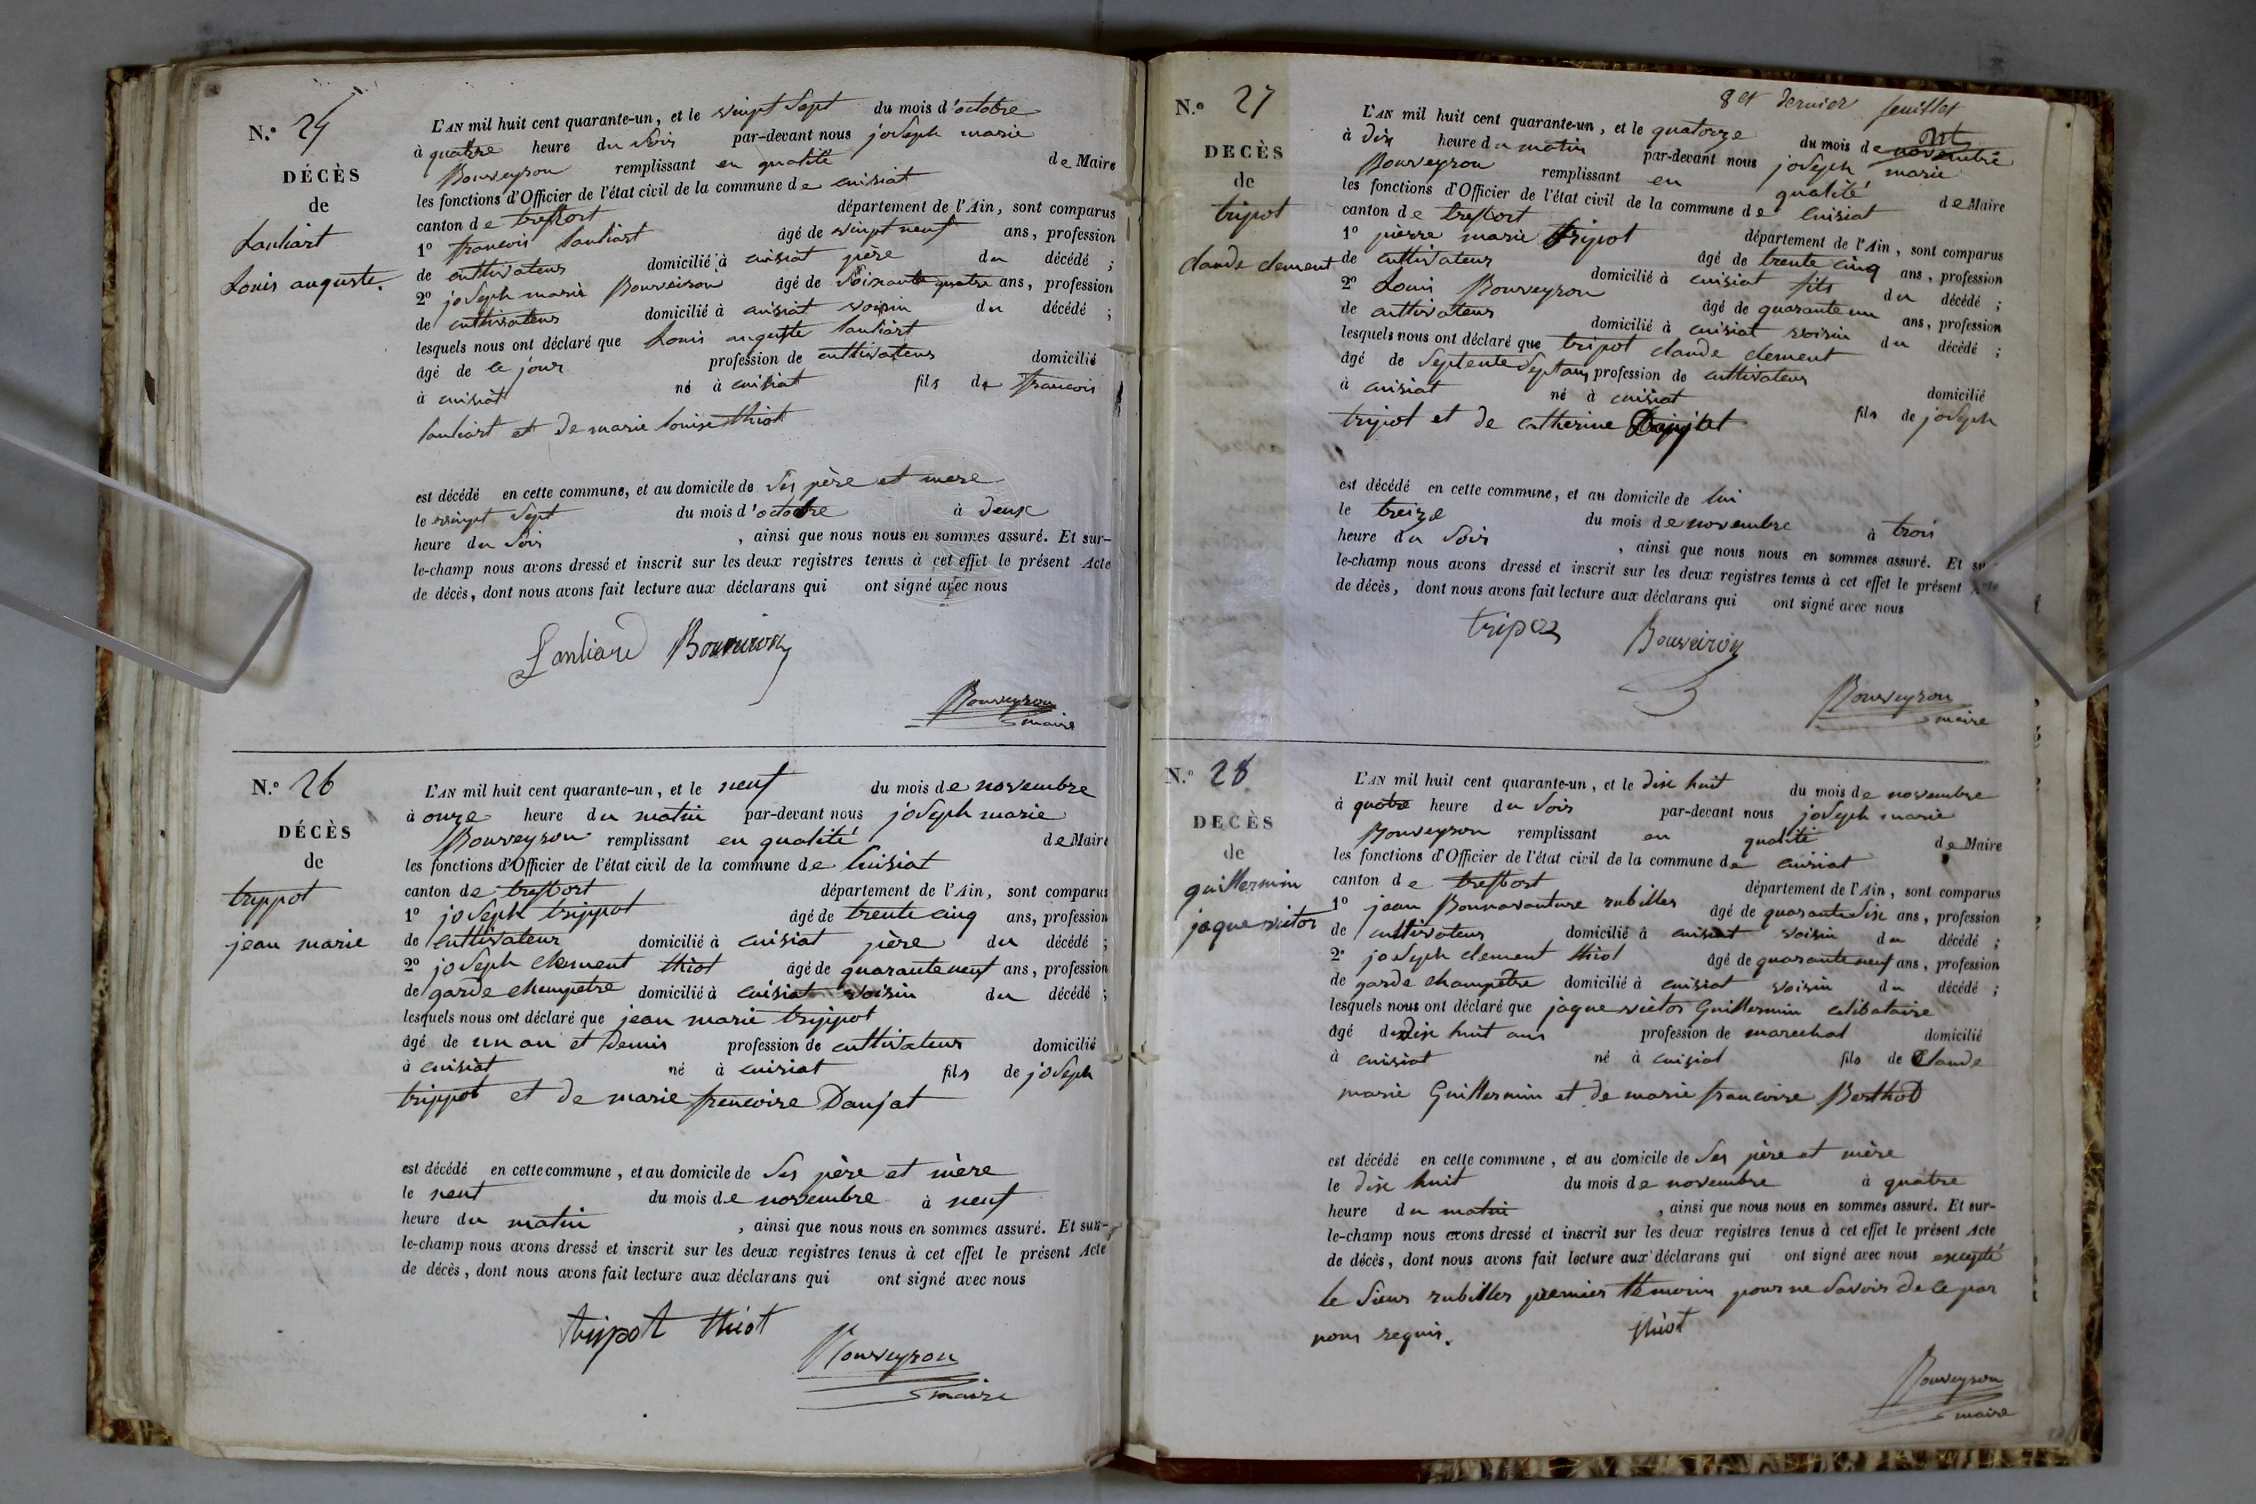 N.º
DÉCÈS
de
Lauliart
Louis auguste.
L'AN mil huit cent quarante-un, et le vingt sept du mois d'octobre
à quatre heure du soir par-devant nous joseph marie
Bouveyron remplissant en qualité de Maire
les fonctions d'Officier de l'état civil de la commune de cuisiat
canton de treffort département de l'Ain, sont comparus
1º francois lauliart âgé de vingt neuf ans, profession
de cultivateur domicilié à cuisiat père du décédé ;
2º joseph marie Bouveiron âgé de soixante quatre ans, profession
de cultivateur domicilié à cuisiat voisin du décédé ;
lesquels nous ont déclaré que Louis auguste lauliart
âgé de ce jour profession de cultivateur domicilié
à cuisiat né à cuisiat fils de francois
lauliart et de marie louise thiot
est décédé en cette commune, et au domicile de ses père et mere
le vingt sept du mois d'octobre à deux
heure du soir , ainsi que nous nous en sommes assuré. Et sur-
le-champ nous avons dressé et inscrit sur les deux registres tenus à cet effet le présent Acte
de décès, dont nous avons fait lecture aux déclarans qui ont signé avec nous
Lauliard Bouveiron
Bouveyron
maire
N.º 26
DÉCÈS
de
trippot
jean marie
L'AN mil huit cent quarante-un, et le neuf du mois de novembre
à onze heure du matin par-devant nous joseph marie
Bouveyron remplissant en qualité de Maire
les fonctions d'Officier de l'état civil de la commune de Cuisiat
canton de treffort département de l'Ain, sont comparus
1º joseph trippot âgé de trente cinq ans, profession
de cultivateur domicilié à cuisiat père du décédé ;
2º joseph clement thiot âgé de quarante neuf ans, profession
de garde champetre domicilié à cuisiat voisin du décédé ;
lesquels nous ont déclaré que jean marie trippot
âgé de un an et demis profession de cultivateur domicilié
à cuisiat né à cuisiat fils de joseph
trippot et de marie francoise Daujat
est décédé en cette commune, et au domicile de ses père et mère
le neuf du mois de novembre à neuf
heure du matin , ainsi que nous nous en sommes assuré. Et sur-
le-champ nous avons dressé et inscrit sur les deux registres tenus à cet effet le présent Acte
de décès, dont nous avons fait lecture aux déclarans qui ont signé avec nous
tripot thiot
Bouveyron
maire
8 et dernier feuillet
N.º 27
DECÈS
de
tripot
claude clement
L'AN mil huit cent quarante-un, et le quatorze du mois de novembre
à dix heure du matin par-devant nous joseph marie
Bouveyron remplissant en qualité de Maire
les fonctions d'Officier de l'état civil de la commune de Cuisiat
canton de treffort département de l'Ain, sont comparus
1º pierre marie tripot âgé de trente cinq ans, profession
de cultivateur domicilié à cuisiat fils du décédé ;
2º Louis Bouveyron âgé de quarante un ans, profession
de cultivateur domicilié à cuisiat voisin du décédé ;
lesquels nous ont déclaré que tripot claude clement
âgé de septente sept ans profession de cultivateur domicilié
à cuisiat né à cuisiat fils de joseph
tripot et de catherine
est décédé en cette commune, et au domicile de lui
le treize du mois de novembre à trois
heure du soir , ainsi que nous nous en sommes assuré. Et sur-
le-champ nous avons dressé et inscrit sur les deux registres tenus à cet effet le présent Acte
de décès, dont nous avons fait lecture aux déclarans qui ont signé avec nous
tripot Bouveiron
Bouveyron
maire
N.º 28
DECÈS
de
guillermin
jaque victor
L'AN mil huit cent quarante-un, et le dix huit du mois de novembre
à quatre heure du soir par-devant nous joseph marie
Bouveyron remplissant en qualité de Maire
les fonctions d'Officier de l'état civil de la commune de cuisiat
canton de treffort département de l'Ain, sont comparus
1º jean Bonnavanture rubiller âgé de quarante six ans, profession
de cultivateur domicilié à cuisiat voisin du décédé ;
2º joseph clement thiot âgé de quarante neuf ans, profession
de garde champetre domicilié à cuisiat voisin du décédé ;
lesquels nous ont déclaré que jaque victor Guillermin celibataire
âgé de dix huit ans profession de marechal domicilié
à cuisiat né à cuisiat fils de Claude
marie Guillermin et de marie francoise Berthod
est décédé en cette commune, et au domicile de ses père et mère
le dix huit du mois de novembre à quatre
heure du matin , ainsi que nous nous en sommes assuré. Et sur-
le-champ nous avons dressé et inscrit sur les deux registres tenus à cet effet le présent Acte
de décès, dont nous avons fait lecture aux déclarans qui ont signé avec nous excepté
le sieur rubiller premier témoin pour ne savoir de ce par
nous requis.
thiot
Bouveyron
maire